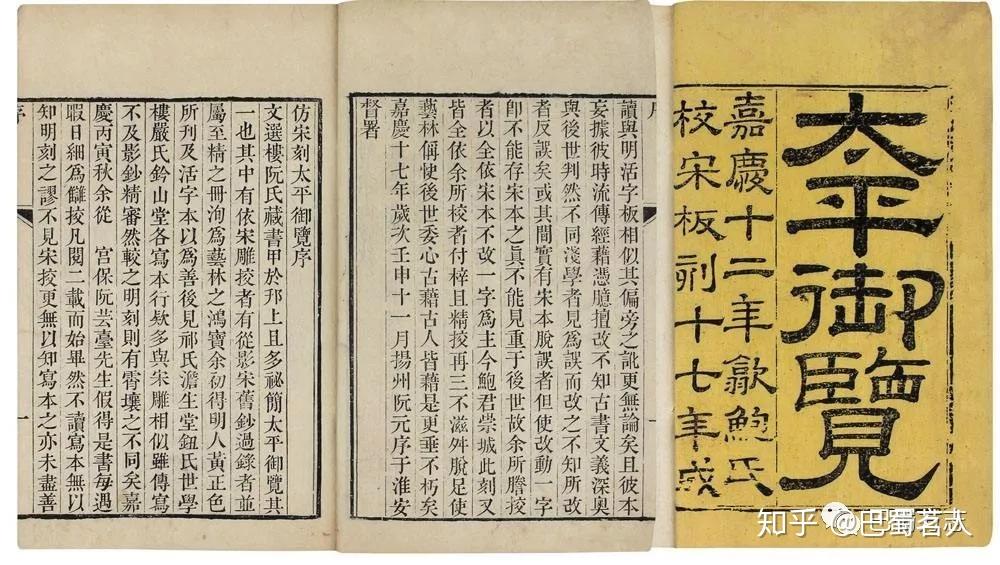 太平御覽
嘉慶十二年歙鮑氏
校宋板刻十七年成
讀與明活字板相似其偏旁之訛更無論矣且彼本
妄據彼時流傳經藉憑臆擅改不知古書文義深奧
與後世判然不同淺學者見爲誤而改之不知所改
者反誤矣或其間實有宋本脫誤者但使改動一字
卽不能存宋本之真不能見重于後世故余所謄挍
者以全依宋本不改一字爲主今鮑君崇城此刻又
皆全依余所挍者付梓且精挍再三不滋舛脫足使
藝林偁快後世委心古藉古人皆藉是更垂不朽矣
嘉慶十七年歲次壬申十一月揚州阮元序于淮安
督署
仿宋刻太平御覽序
文選樓阮氏藏書甲於邗上且多祕簡太平御覽其
一也其中有依宋雕挍者有從影宋舊鈔過錄者並
屬至精之冊洵爲藝林之鴻寶余初得明人黃正色
所刊及活字本以爲善後見祁氏澹生堂鈕氏世學
樓嚴氏鈐山堂各寫本行欵多與宋雕相似雖傳寫
不及影鈔精審然較之明刻則有霄壤之不同矣嘉
慶丙寅秋余從 宮保阮芸臺先生假得是書每遇
暇日細爲讎挍凡閱二載而始畢然不讀寫本無以
知明刻之謬不見宋挍更無以知寫本之亦未盡善
序
一
知乎 @巴蜀茗人